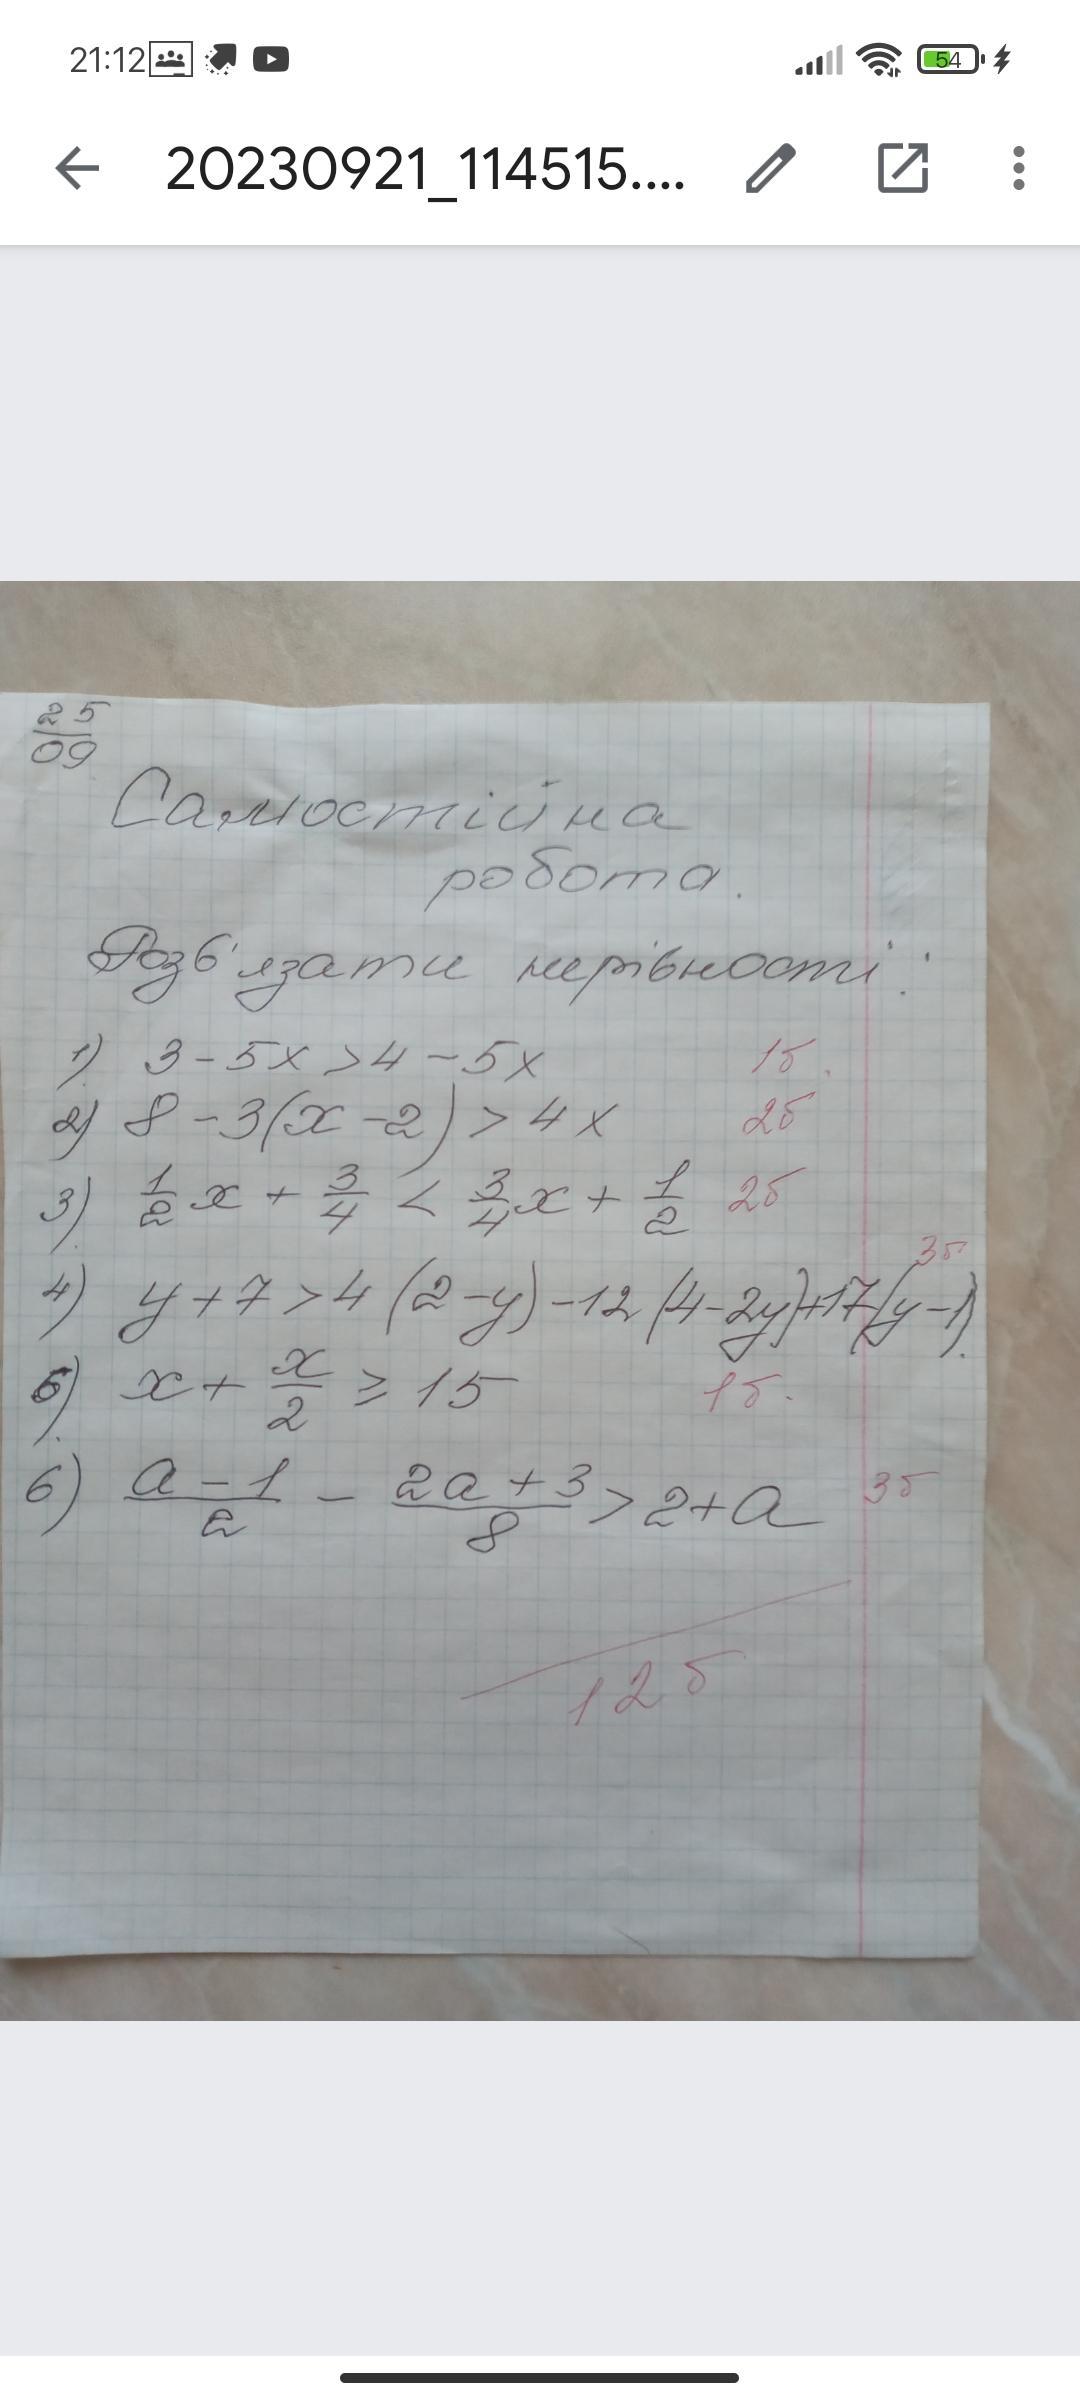 21:12
54
20230921_114515....
25
09
Самостійна
робота.
Розв'язати нерівності:
1) 3-5x>4-5x 1б.
2) 8-3(x-2)>4x 2б
3) 1/2 x + 3/4 < 3/4 x + 1/2 2б
4) y+7>4(2-y)-12(4-2y)+17(y-1). 3б
5) x + x/2 ≥ 15 1б.
6) a-1/2 - 2a+3/8 > 2+a 3б
12б